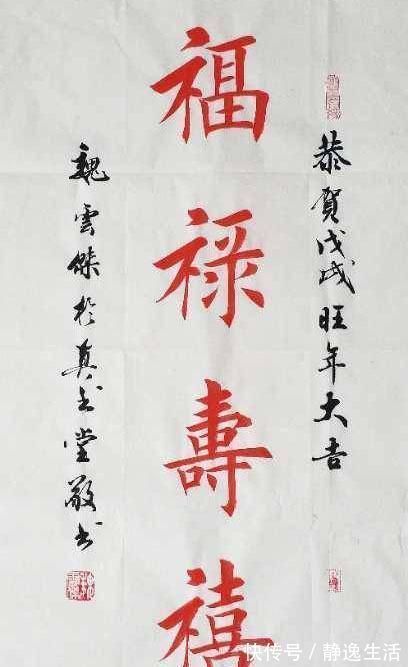 恭賀戊戌旺年大吉
福祿壽禧
魏雲傑於真書堂敬書
快传号/静逸生活